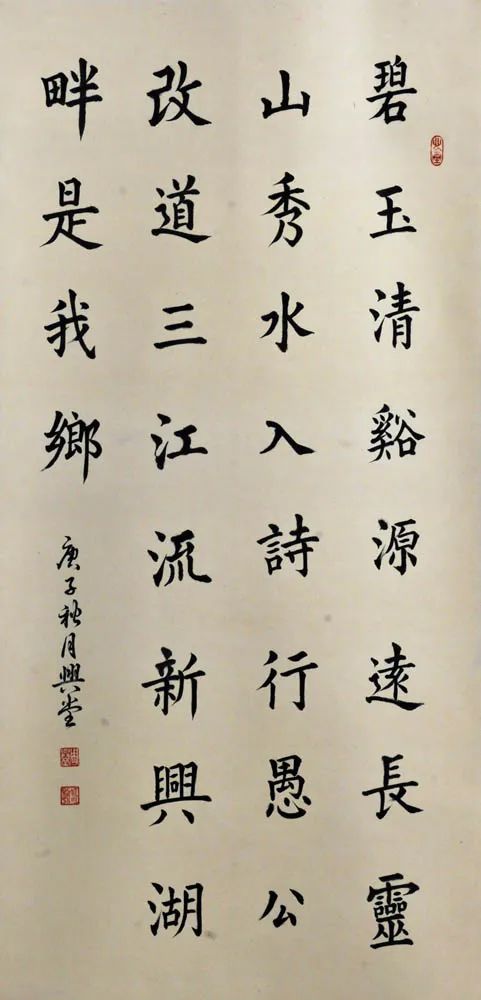 碧玉清谿源遠長靈
山秀水入詩行愚公
改道三江流新興湖
畔是我鄉
庚子秋月興堂